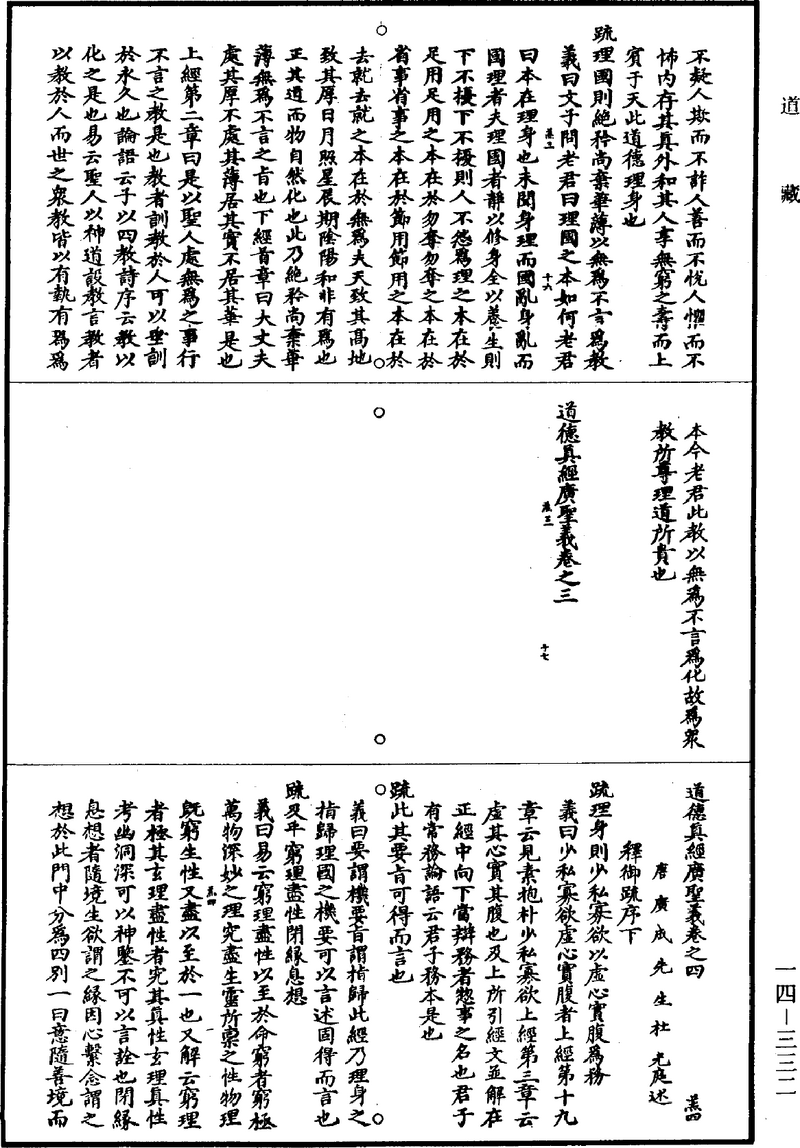 道藏
不疑人欺而不詐人善而不恱人懼而不
怖内存其真外和其人享無窮之壽而上
賓于天此道德理身也
疏理國則絶矜尚棄華薄以無爲不言爲教
義曰文子問老君曰理國之本如何老君
曰本在理身也未聞身理而國亂身亂而
國理者夫理國者靜以修身全以養生則
下不擾下不擾則人不怨爲理之本在於
足用足用之本在於勿奪勿奪之本在於
省事省事之本在於節用節用之本在於
去就去就之本在於無爲夫天致其高地
致其厚日月照星辰期陰陽和非有爲也
正其道而物自然化也此乃絶矜尚棄華
薄無爲不言之旨也下經首章曰大丈夫
處其厚不處其薄居其實不居其華是也
上經第二章曰是以聖人處無爲之事行
不言之教是也教者訓教於人可以垂訓
於永久也論語云子以四教詩序云教以
化之是也易云聖人以神道設教言教者
以教於人而世之衆教皆以有執有爲爲
十六
本今老君此教以無爲不言爲化故爲衆
教所尊理道所貴也
道德真經廣聖義卷之三
十七
道德真經廣聖義卷之四
羔四
唐廣成先生杜光庭述
釋御疏序下
疏理身則少私寡欲以虚心實腹爲務
義曰少私寡欲虚心實腹者上經第十九
章云見素抱朴少私寡欲上經第三章云
虚其心實其腹也及上所引經文並解在
正經中向下當辯務者惣事之名也君子
有常務論語云君子務本是也
疏此其要旨可得而言也
義曰要謂機要旨謂指歸此經乃理身之
指歸理國之機要可以言述固得而言也
疏及乎窮理盡性閉緣息想
義曰易云窮理盡性以至於命窮者窮極
萬物深妙之理究盡生靈所禀之性物理
既窮生性又盡以至於一也又解云窮理
者極其玄理盡性者究其真性玄理真性
考幽洞深可以神鑒不可以言詮也閉緣
息想者隨境生欲謂之緣因心繫念謂之
想於此門中分爲四别一曰意隨善境而
一四—三三二